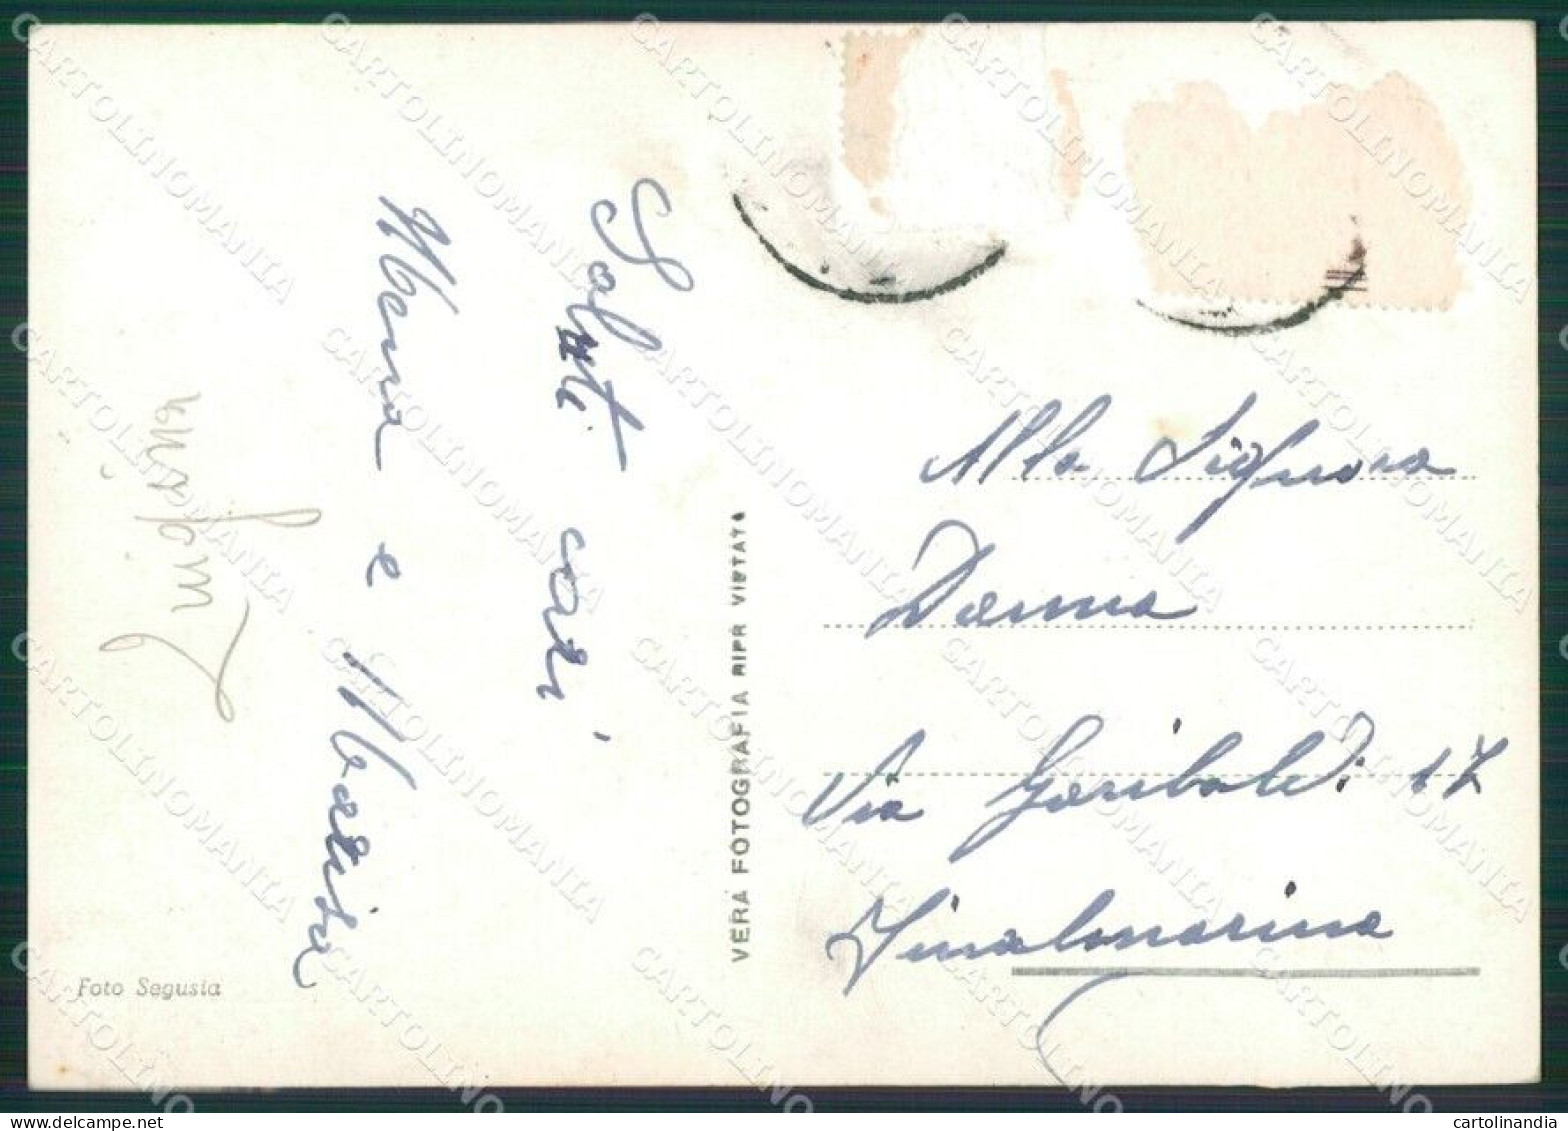 Saluti cari
Nena e Marisa
Alla Signora
Danna
Via Garibaldi 17
Finalmarina
VERA FOTOGRAFIA RIPR VIETATA
Foto Segusia
CARTOLINOMANIA
cartolinandia